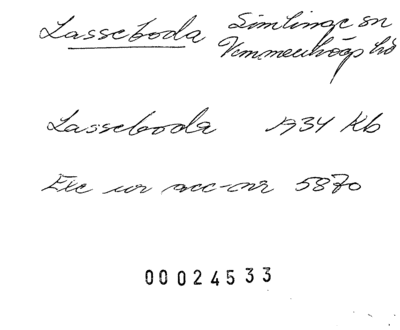 Lasseboda Simlinge sn
Vemmenhögs hd
Lasseboda 1934 Kb
Exc ur acc-nr 5870
00024533